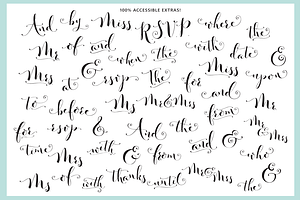 100% ACCESSIBLE EXTRAS!
And by Miss RSVP where the
Mr of and when the with date &
Miss at & rsvp the for Miss upon
to before Ms Mr&Mrs and from Mr
for rsvp & And the from and & Mr&Mrs
time Mrs with & from and & who
Ms of with thanks until Mr&Mrs the &